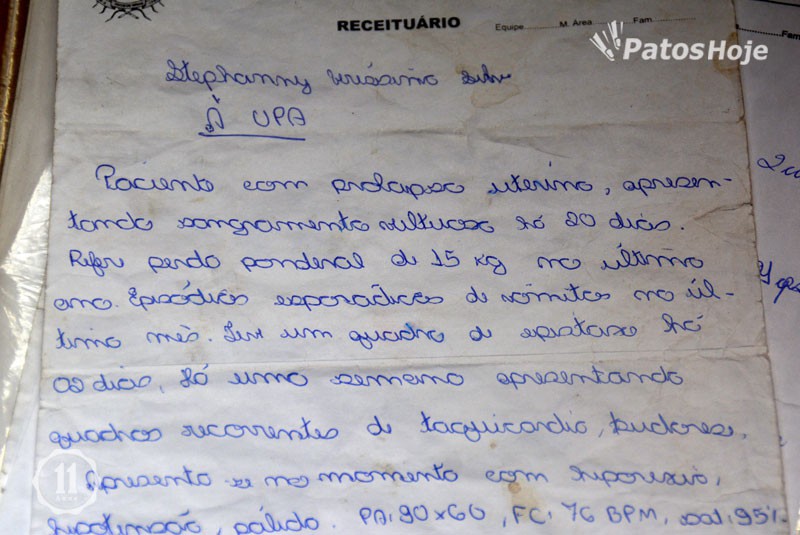 RECEITUÁRIO Equipe M. Área Fam.
PatosHoje
Fam
Stephanny
À UPA
Paciente com prolapso uterino, apresen-
tando sangramento vultuoso há 20 dias.
Refere perda ponderal de 15 kg no último
ano. Episódios esporádicos de vômitos no úl-
timo mês. Teve um quadro de epistaxe há
02 dias, há uma semana apresentando
quadros recorrentes de taquicardia, sudorese.
Apresenta-se no momento com hiporexia,
hipotensão, pálida. PA: 90x60, FC: 76 BPM, sat: 95%
11
ANOS